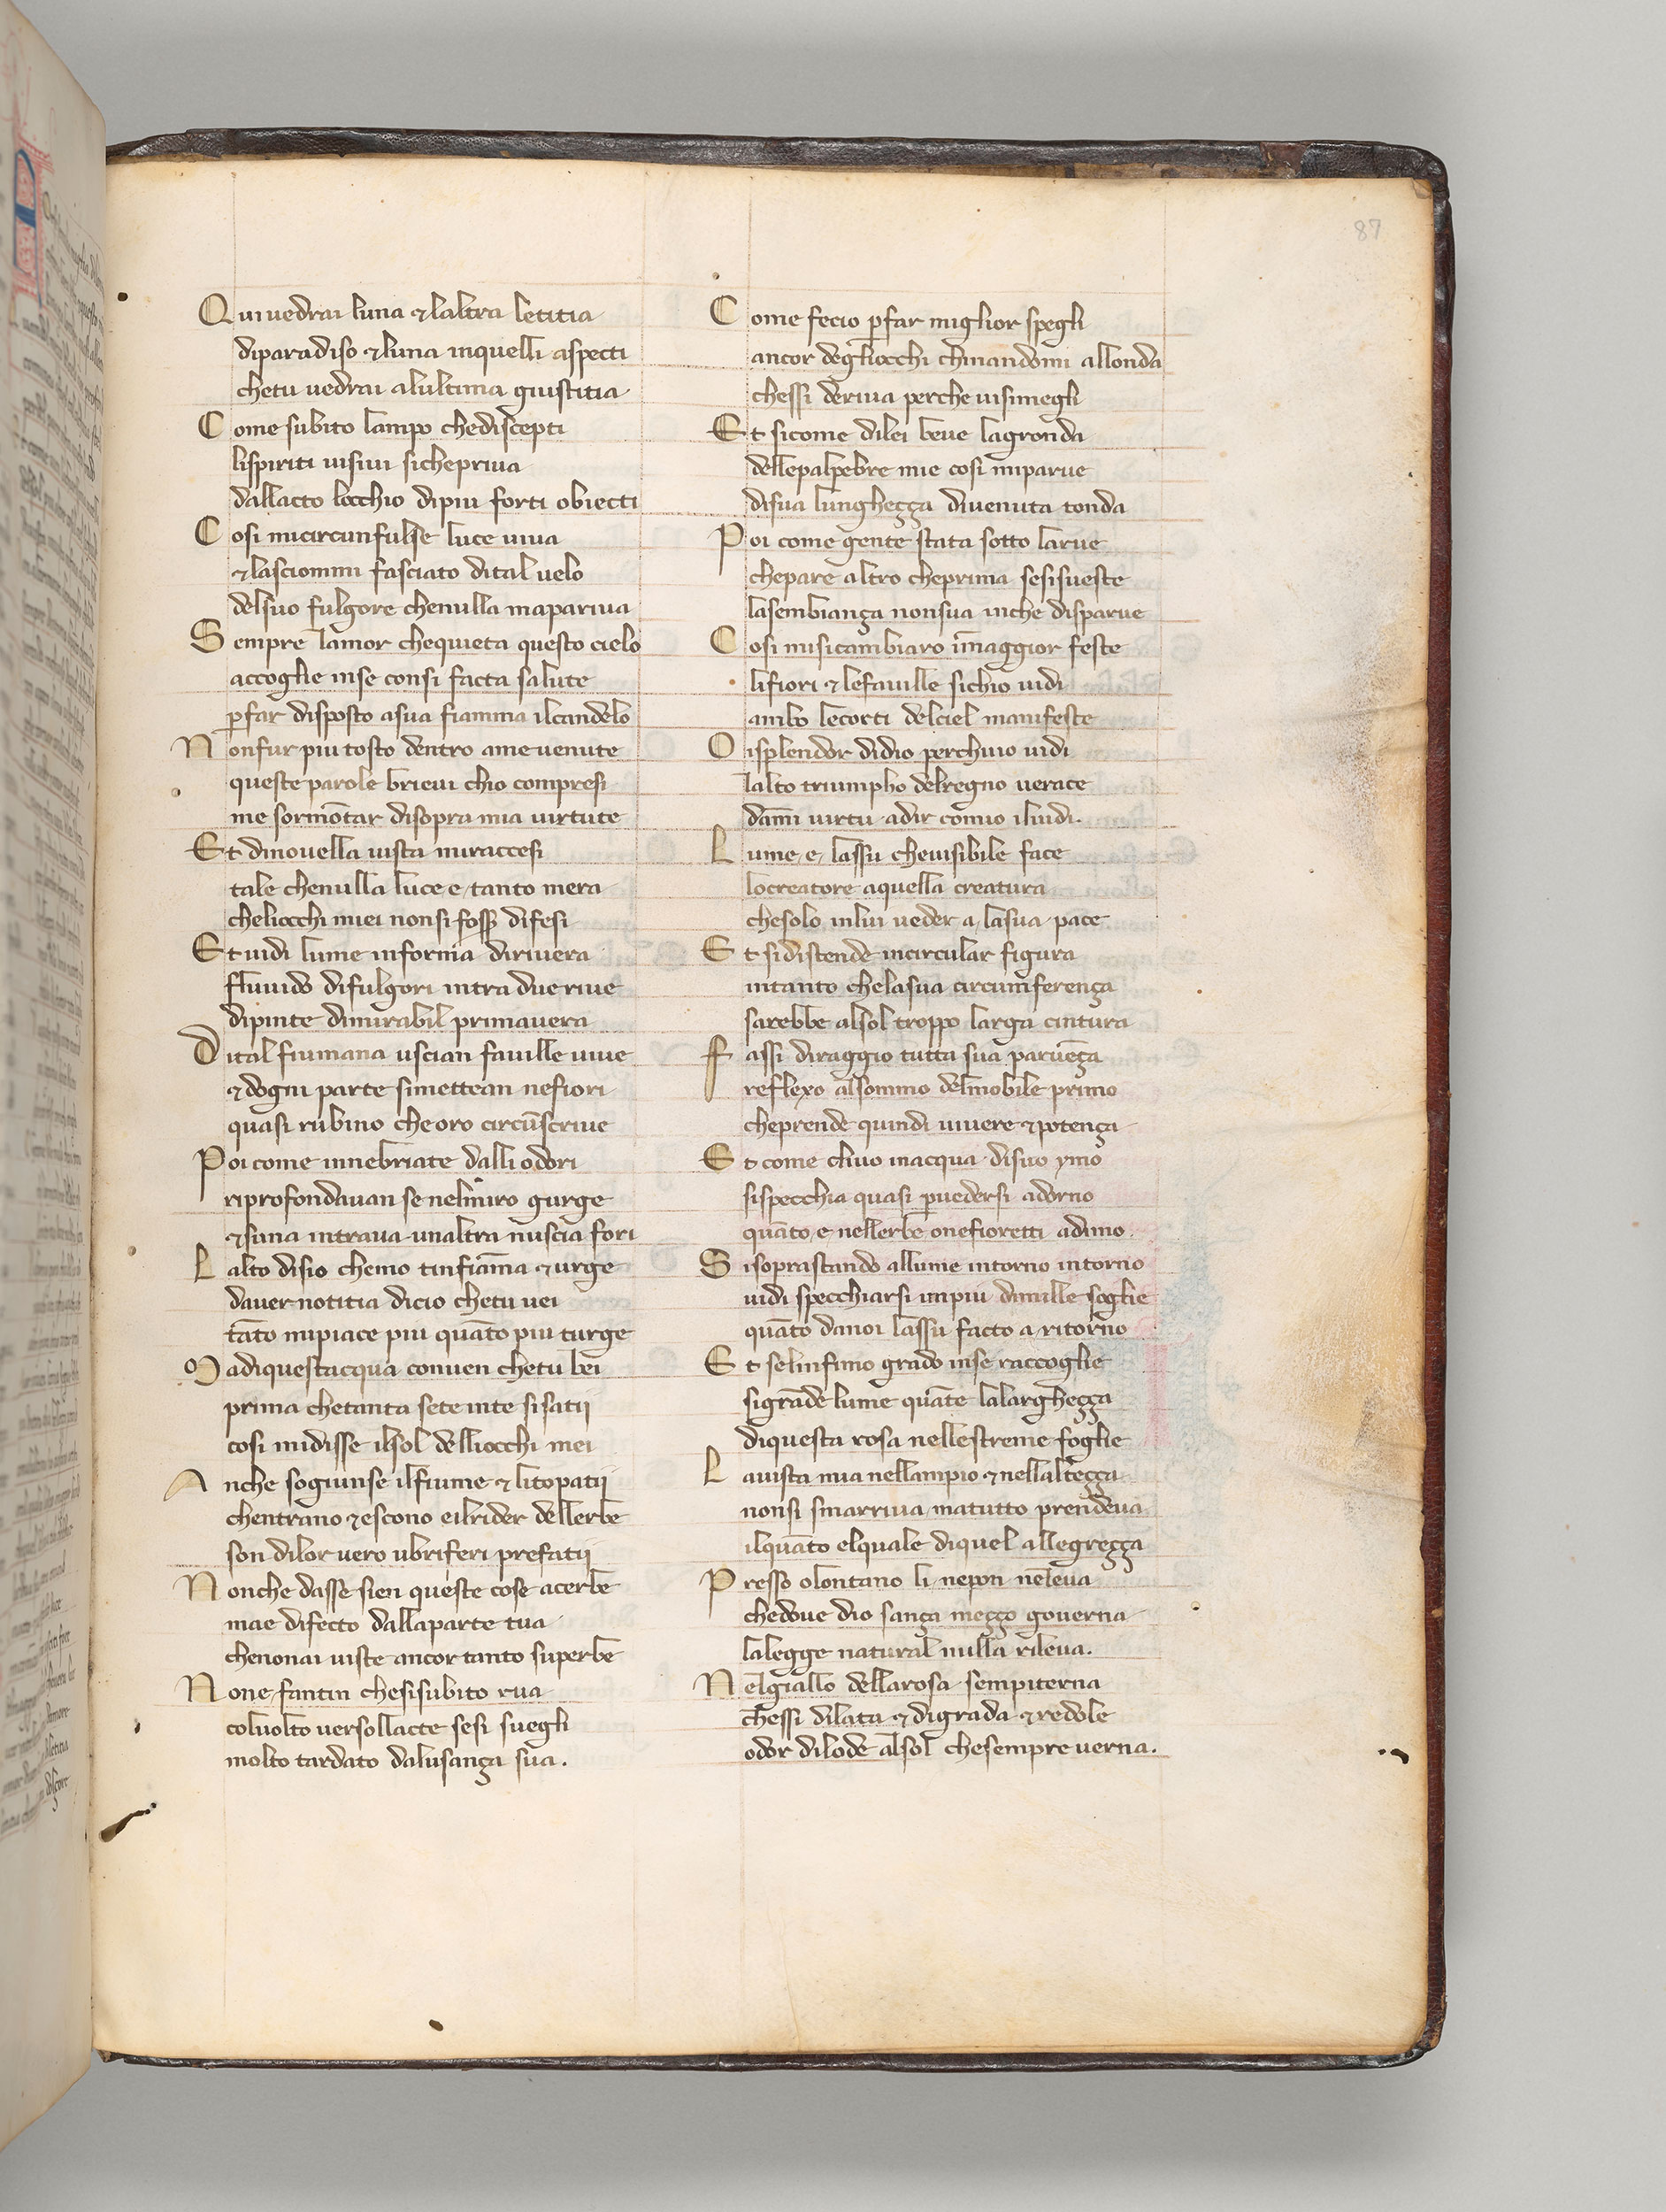 87
Qui vedrai luna & laltra letitia
diparadiso & luna inquelli aspecti
chetu vedrai alultima giustitia
Come subito lampo chediscepti
lispiriti visivi sichepriva
dallacto locchio dipiu forti obiecti
Cosi micircunfulse luce viva
& lasciommi fasciato dital velo
delsuo fulgore chenulla mapariva
Sempre lamor chequieta questo cielo
accoglie inse consi facta salute
ꝑfar disposto asua fiamma ilcandelo
Nonfur piu tosto dentro ame venute
queste parole brievi chio compresi
me sormōtar disopra mia virtute
Et dinovella vista miraccesi
tale chenulla luce e tanto mera
cheliocchi miei nonsi fosser difesi
Et vidi lume informa dirivera
fluvido difulgori intra due rive
dipinte dimirabil primavera
Dital fiumana uscian faville vive
& dogni parte simettean nefiori
quasi rubino che oro circūscrive
Poi come innebriate dalli odori
riprofondavan se nelmiro gurge
& suna intrava unaltra nuscia fori
Lalto disio chemo tinfiāma & urge
daver notitia dicio chetu vei
tāto mipiace piu quāto piu turge
Madiquestacqua convien chetu bei
prima chetanta sete inte sisatij
cosi midisse ilsol delliocchi mei
Anche sogiunse ilfiume & litopatij
chentrano & escono eilrider dellerbe
son dilor vero ubriferi prefatij
Nonche dasse sien queste cose acerbe
mae difecto dallaparte tua
chenonai viste ancor tanto superbe
None fantin chesisubito rua
colvolto versollacte sesi svegli
molto tardato dalusança sua.
Come fecio ꝑfar miglior spegli
ancor degliocchi chinandomi allonda
chessi deriva perche visimegli
Et sicome dilei beve lagronda
dellepalpebre mie cosi miparve
disua lunghegga divenuta tonda
Poi come gente stata sotto larve
chepare altro cheprima sesisveste
lasembiança nonsua inche disparve
Cosi misicambiaro īmaggior feste
lifiori & lefaville sichio vidi
ambo lecorti delciel manifeste
O isplendor didio perchuio vidi
lalto triumpho delregno verace
dāmi virtu adir comio ilvidi.
Lume e lassu chevisibile face
locreatore aquella creatura
chesolo inlui veder a lasua pace
Et sidistende incircular figura
intanto chelasua circumferença
sarebbe alsol troppo larga cintura
Fassi diraggio tutta sua parvēça
reflexo alsommo delmobile primo
cheprende quindi vivere & potença
Et come clivo inacqua disuo ymo
sispecchia quasi ꝑvedersi adorno
quāto e nellerbe onefioretti adimo.
Sisoprastando allume intorno intorno
vidi specchiarsi inpiu dimille soglie
quāto danoi lassu facto a ritorno
Et selinfimo grado inse raccoglie
sigrāde lume quāte lalarghegga
diquesta rosa nellestreme foglie
Lavista mia nellampio & nellaltegga
nonsi smarriva matutto prendeva
ilquāto elquale diquel allegregga
Presso olontano li nepon neleva
chedove dio sança meggo governa
lalegge natural nulla rileva.
Nelgiallo dellarosa sempiterna
chessi dilata & digrada & redole
odor dilode alsol chesempre verna.